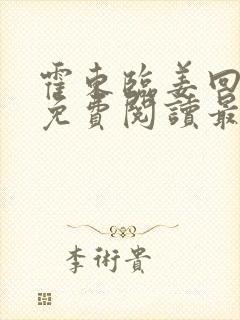 霍東臨姜回
免費閱讀最
李術貴